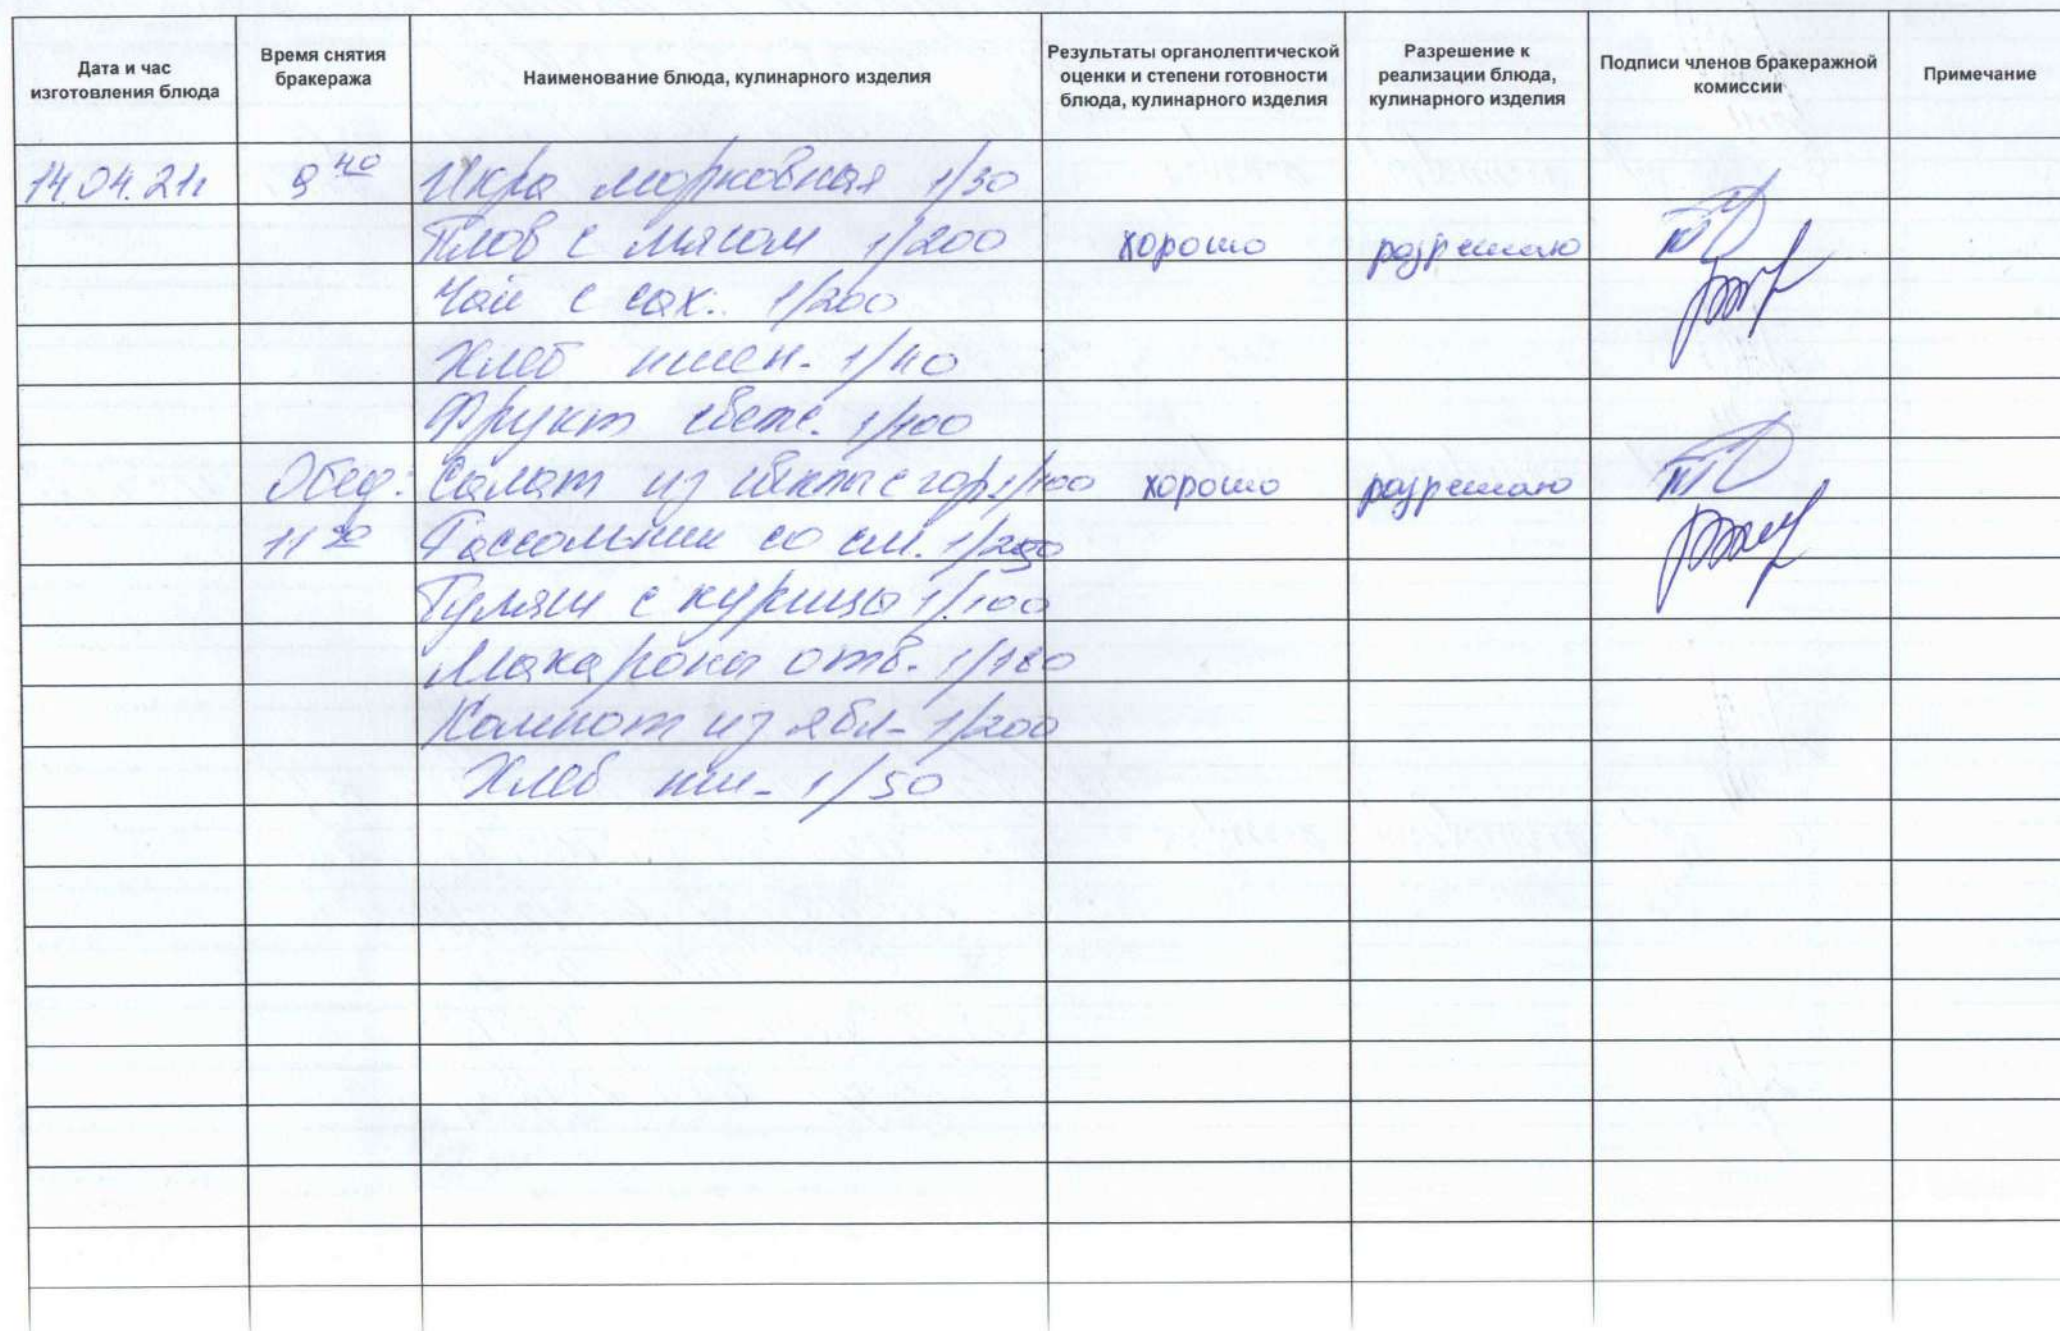 Дата и час изготовления блюда
Время снятия бракеража
Наименование блюда, кулинарного изделия
Результаты органолептической оценки и степени готовности блюда, кулинарного изделия
Разрешение к реализации блюда, кулинарного изделия
Подписи членов бракеражной комиссии
Примечание
14.04.21г 9 40 Икра морковная 1/30
Плов с мясом 1/200 хорошо разрешаю
Чай с сах. 1/200
Хлеб пшен. 1/40
Фрукт свеж. 1/100
Обед: Салат из свеклы с гор. 1/100 хорошо разрешаю
11 30 Рассольник со см. 1/250
Гуляш с курицы 1/100
Макароны отв. 1/180
Компот из ябл. 1/200
Хлеб пш. 1/50